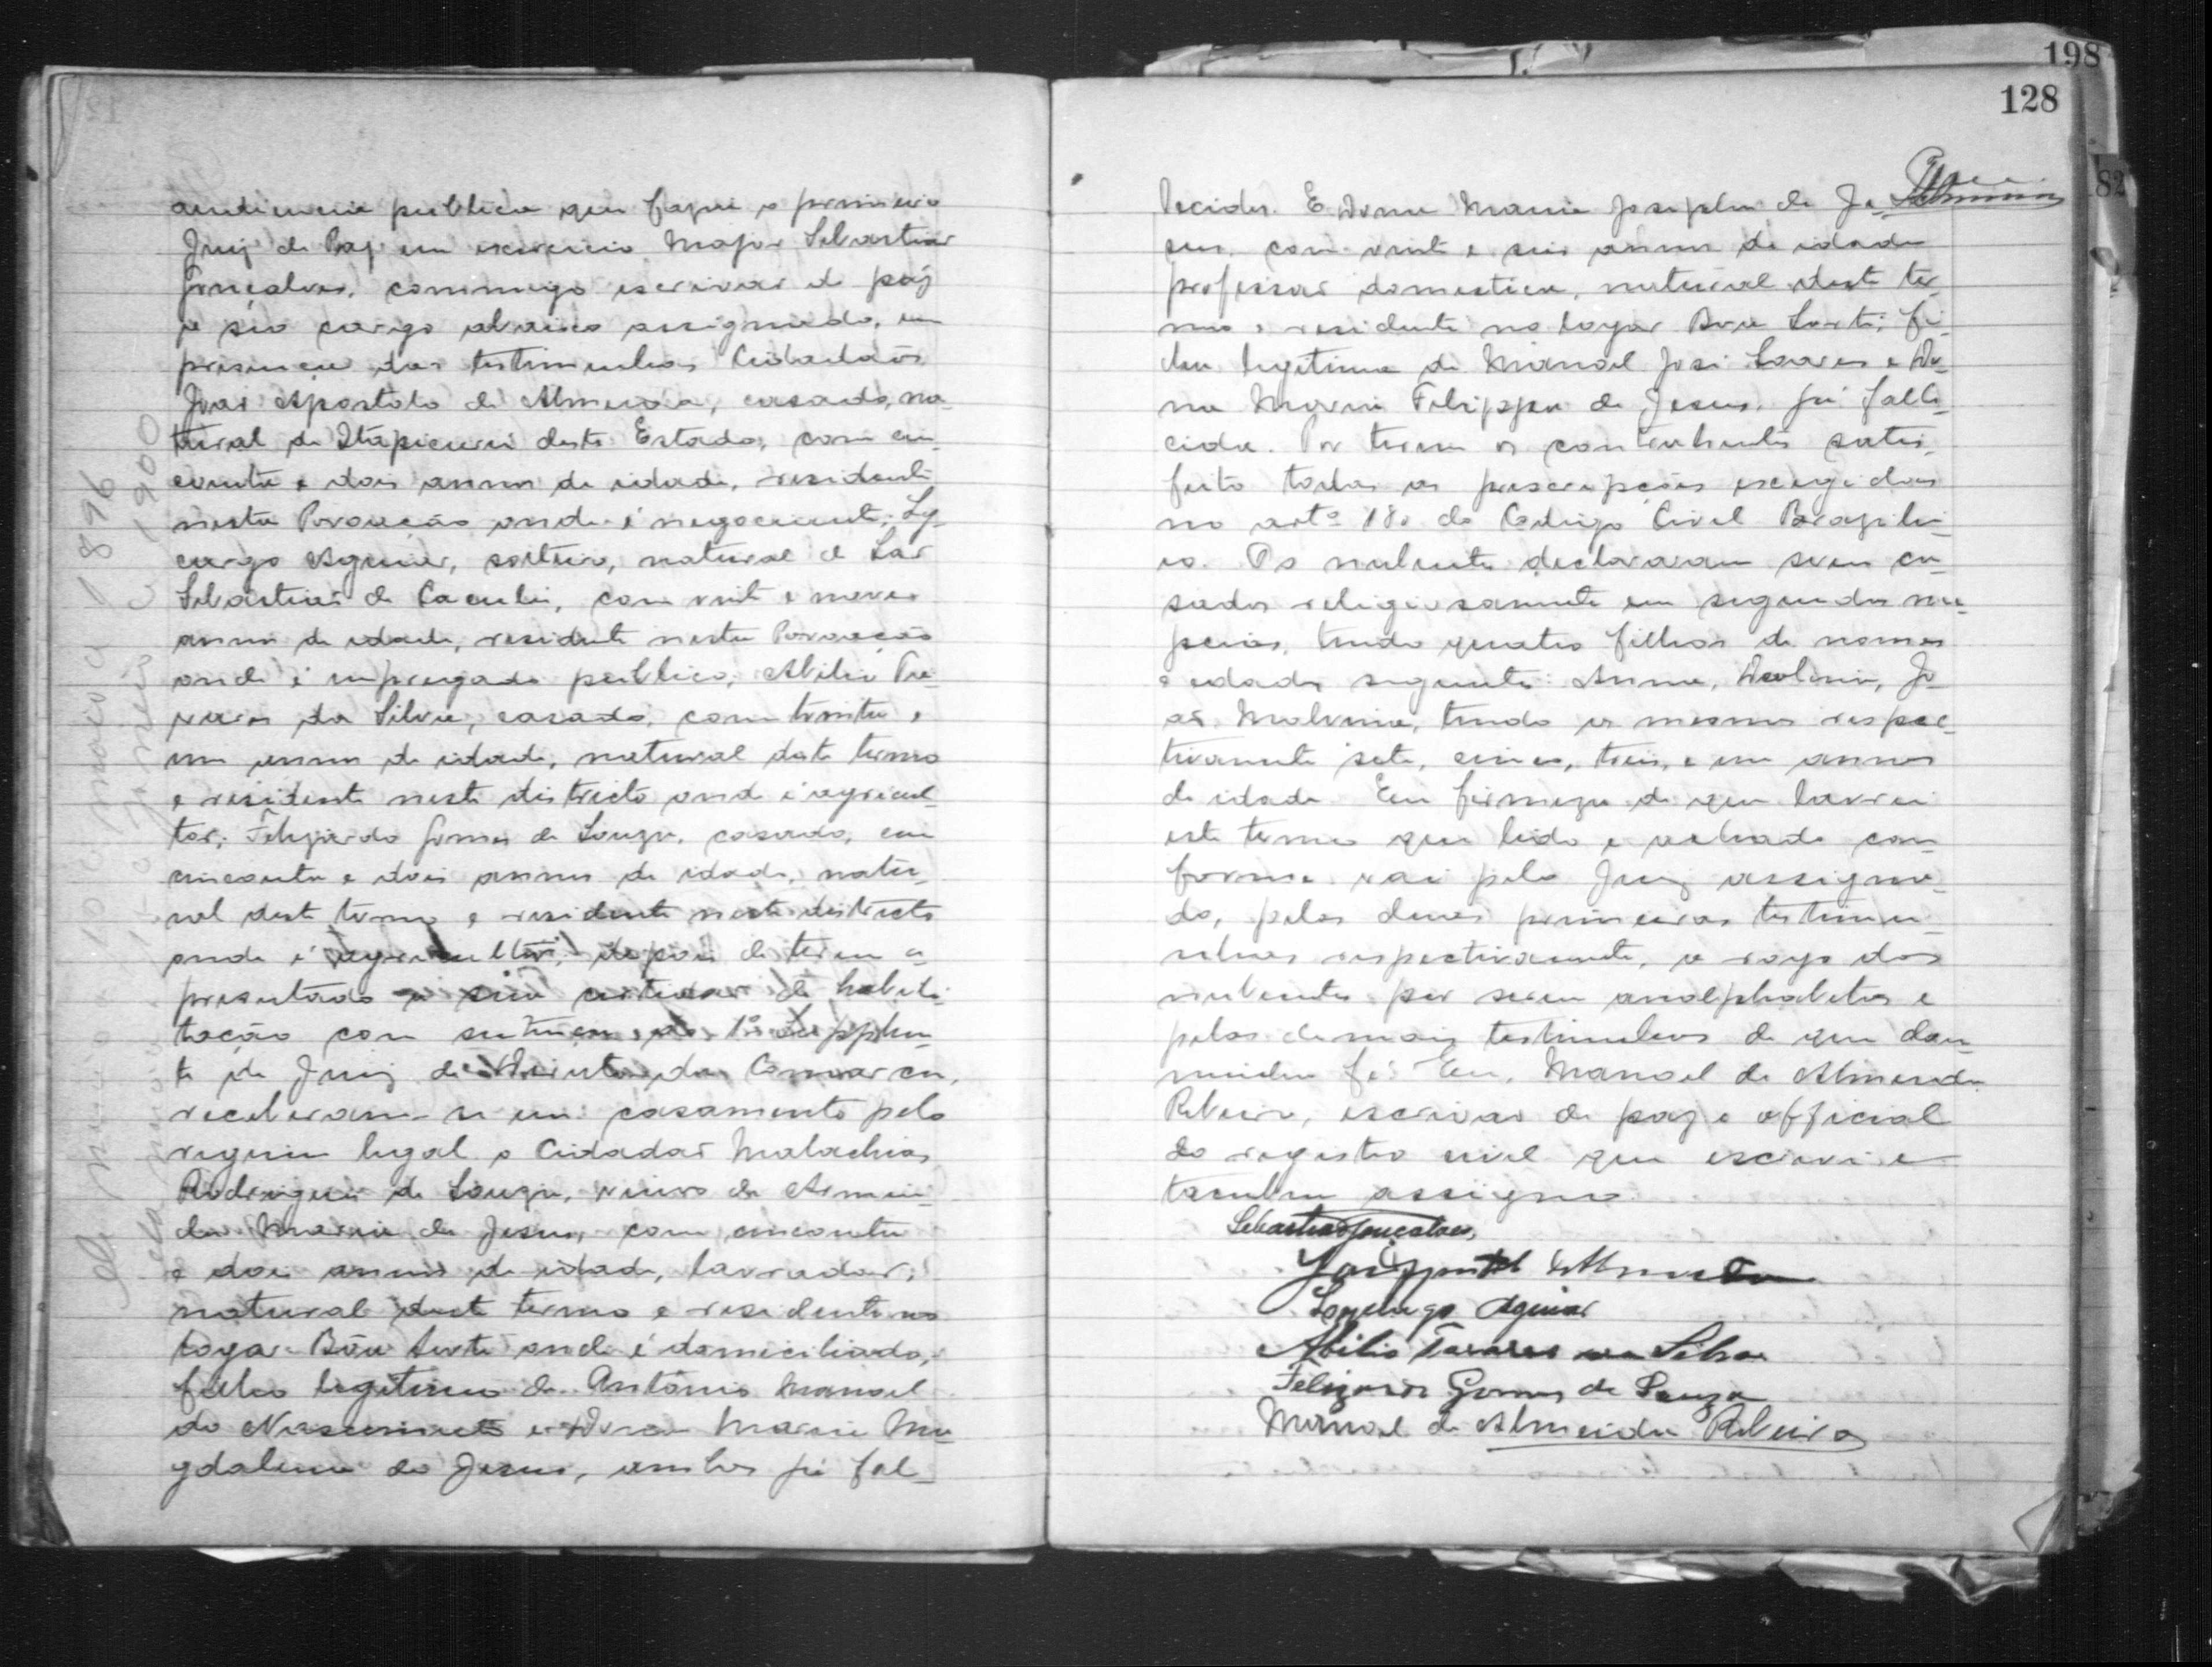 audiencia publica que fazia o primeiro
Juiz de Paz em exercicio Major Sebastião
Gonçalves, commigo escrivão de paz
de seu cargo abaixo assignado, em
presença das testimunhas Cidadãos
João Apostolo de Almeida, casado, na-
tural de Itapicurú deste Estado, com cin-
coenta e dois annos de idade, residente
nesta Povoação onde é negociante; Ly-
curgo Aguiar, solteiro, natural de São
Sebastião de Caculé, com vinte e nove
annos de idade, residente nesta Povoação
onde é empregado publico; Abilio Ta-
vares da Silva, casado, com trinta e
um annos de idade, natural deste termo
e residente neste districto onde é agricul-
tor; Felizardo Gomes de Souza, casado, com
cincoenta e dois annos de idade, natu-
ral deste termo e residente neste districto
onde é agricultor; depois de terem a-
presentado a sua certidão de habili-
tação com sentença do 1º Supplen-
te de Juiz de Direito da Comarca,
receberam-se em casamento pelo
regimen legal o Cidadão Malachias
Rodrigues de Souza, viuvo de Armin-
da Maria de Jesus, com cincoenta
e dois annos de idade, lavrador,
natural deste termo e residente no
logar Bôa Sorte onde é domiciliado,
filho legitimo de Antônio Manoel
do Nascimento e Dona Maria Ma-
gdalena de Jesus, ambos já fal-
198
128
82
lecidos. E Dona Maria Josepha de Je-
sus, com vinte e seis annos de idade
profissão domestica, natural deste ter-
mo e residente no logar Bôa Sorte; fi-
lha legitima de Manoel José Soares e Do-
na Maria Filippa de Jesus, já falle-
cida. Por terem os contrahentes satis-
feito todas as prescripções exigidas
no artº 180 do Codigo Civil Brazilei-
ro. Os nubentes declararam serem ca-
sados religiosamente em segundas nu-
pcias, tendo quatro filhos de nomes
e idades seguintes: Anna, Deolina, Jo-
ão Malvina, tendo os mesmos respec-
tivamente sete, cinco, trez, e um annos
de idade. Em firmeza do que lavrei
este termo que lido e achado con-
forme vai pelo Juiz assigna-
do, pelas duas primeiras testimu-
nhas respectivamente, a rogo dos
nubentes por serem analphabetos e
pelas demais testimunhas do que dou
minha fé. Eu, Manoel de Almeida
Ribeiro, escrivão de paz e official
do registro civil que escrevi e
tambem assigno.
Sebastião Gonçalves,
João Apostolo de Almeida
Lycurgo Aguiar
Abilio Tavares da Silva
Felizardo Gomes de Souza
Manoel de Almeida Ribeiro